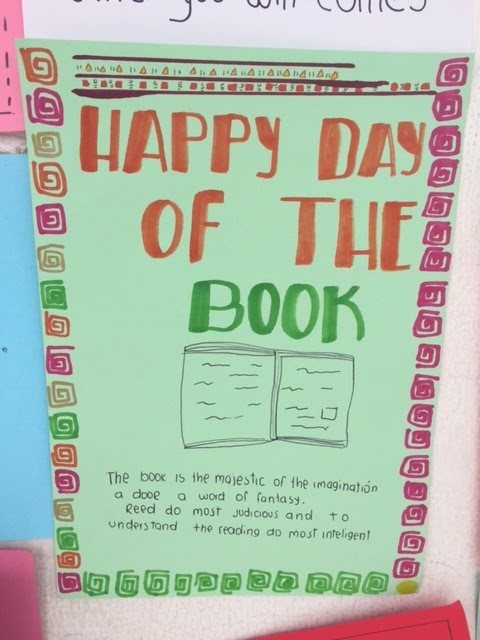 you will comes
HAPPY DAY
OF THE
BOOK
The book is the majestic of the imaginatión
a dooe a word of fantasy.
Reed do most judicious and to
understand the reading do most inteligent